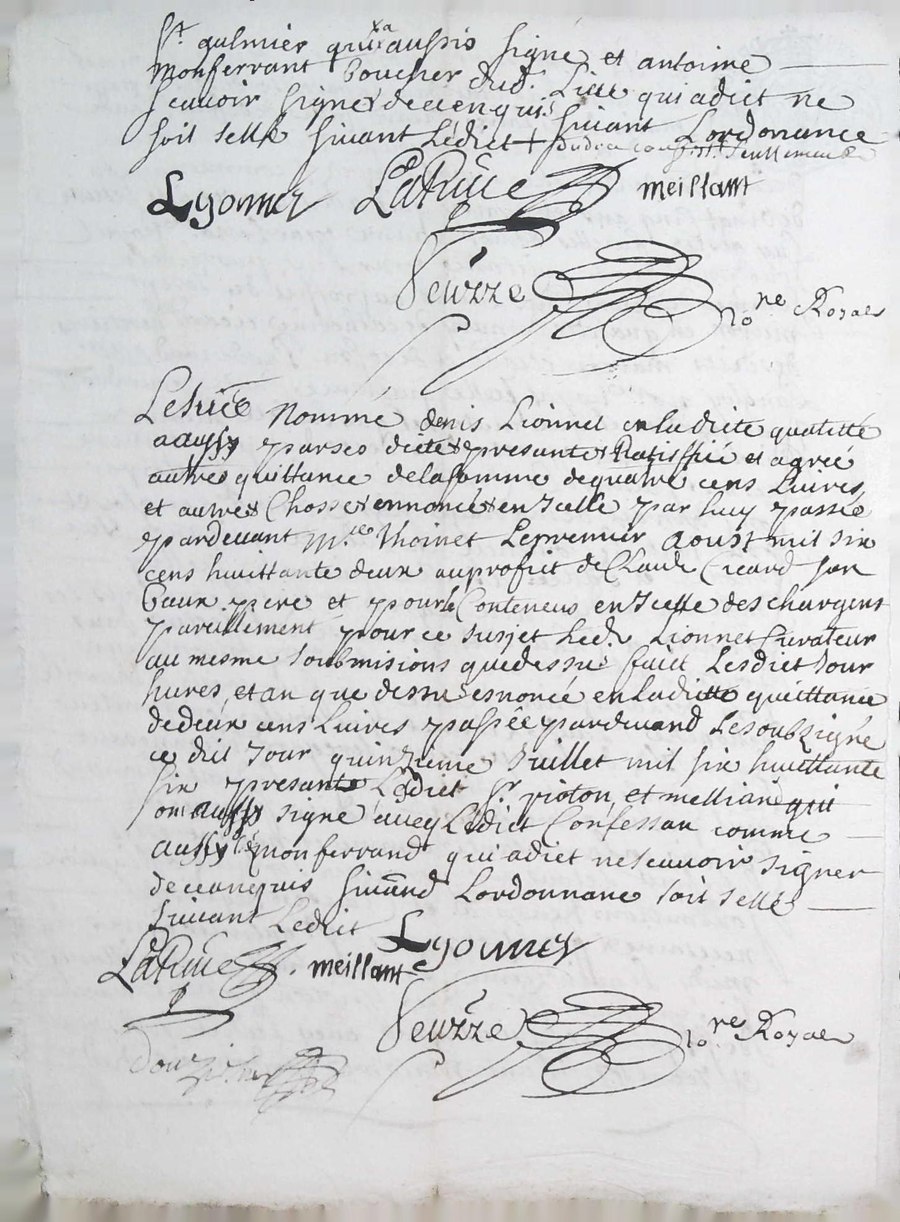 St galmier qui a aussio signé et antoine
monferrant boucher dud. Lieu qui a dict ne
scavoir signer de ce enquis suivant Lordonnance
soit sellé suivant Lédict +
Lyonnet LaRüüe meillant
no.re Royal
nommé denis Lionnet en ladicte qualitté
a aussy par ses dictes presantes Ratiffié et agréé
autre quittance de la somme de quatre cens Livres
et autres Chosses ennoncé en Icelle par luy passée
pardevant M.re Thoinet Le premier Aoust mil six
cens huittante deux au proffit de Claude Cicard son
beau pere et pour le Conteneus en Icelle deschargent
pareillement pour ce susjet Led. Lionnet Curateur
au mesme soubmisions que dessus faict Lesdict Jour
hures et an que dessus esnoncé en laditte quittance
de deux cens Livres passée pardevand Le soubzigné
ce dit Jour quinzieme Juillet mil six huittante
six presant Ledict Sr. pioton et melliand qui
ont aussy signé avecq Ledict Confessan comme
aussy Le monferrand qui a dict ne scavoir signer
de ce anequis suivand Lordonnance soit sellé
suivant Ledict
Lyonnet
LaRüüe meillant
no.re Royal